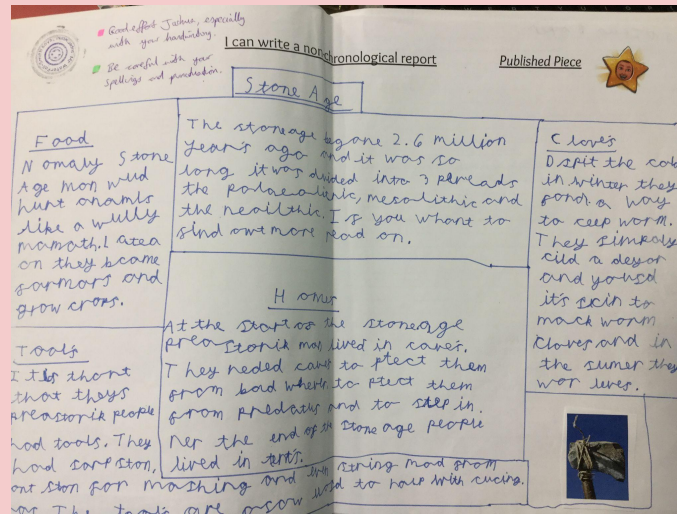 Good effort Joshua, especially
with your handwriting.
Be careful with your
spellings and punctuation.
I can write a non-chronological report
Published Piece
Stone Age
Food
Nomaly Stone
Age man wud
hunt anamls
like a wully
mamath. Latea
on they became
farmars and
grow crops.
The stoneage begane 2.6 million
year's ago and it was so
long it was divided into 3 pereads
the palaeolithic, mesolithic and
the neailthic. If you whant to
find owt more read on.
Cloves
Dspit the cold
in winter they
fond a way
to ceep worm.
They simpaly
cild a deyor
and yousd
it's skin to
mack worm
Cloves and in
the sumer they
wor leves.
Homes
At the start of the stoneage
preastorik man lived in caves.
They neded caves to ptect them
from bad wheth to ptect them
from predatus and to sleep in.
Ner the end of the stone age people
lived in tents.
Tools
It is thort
that theys
preastorik people
had tools. They
had sarp ston,
ont ston for mashing and even string mad from
The tools are usd to halp with cucing.